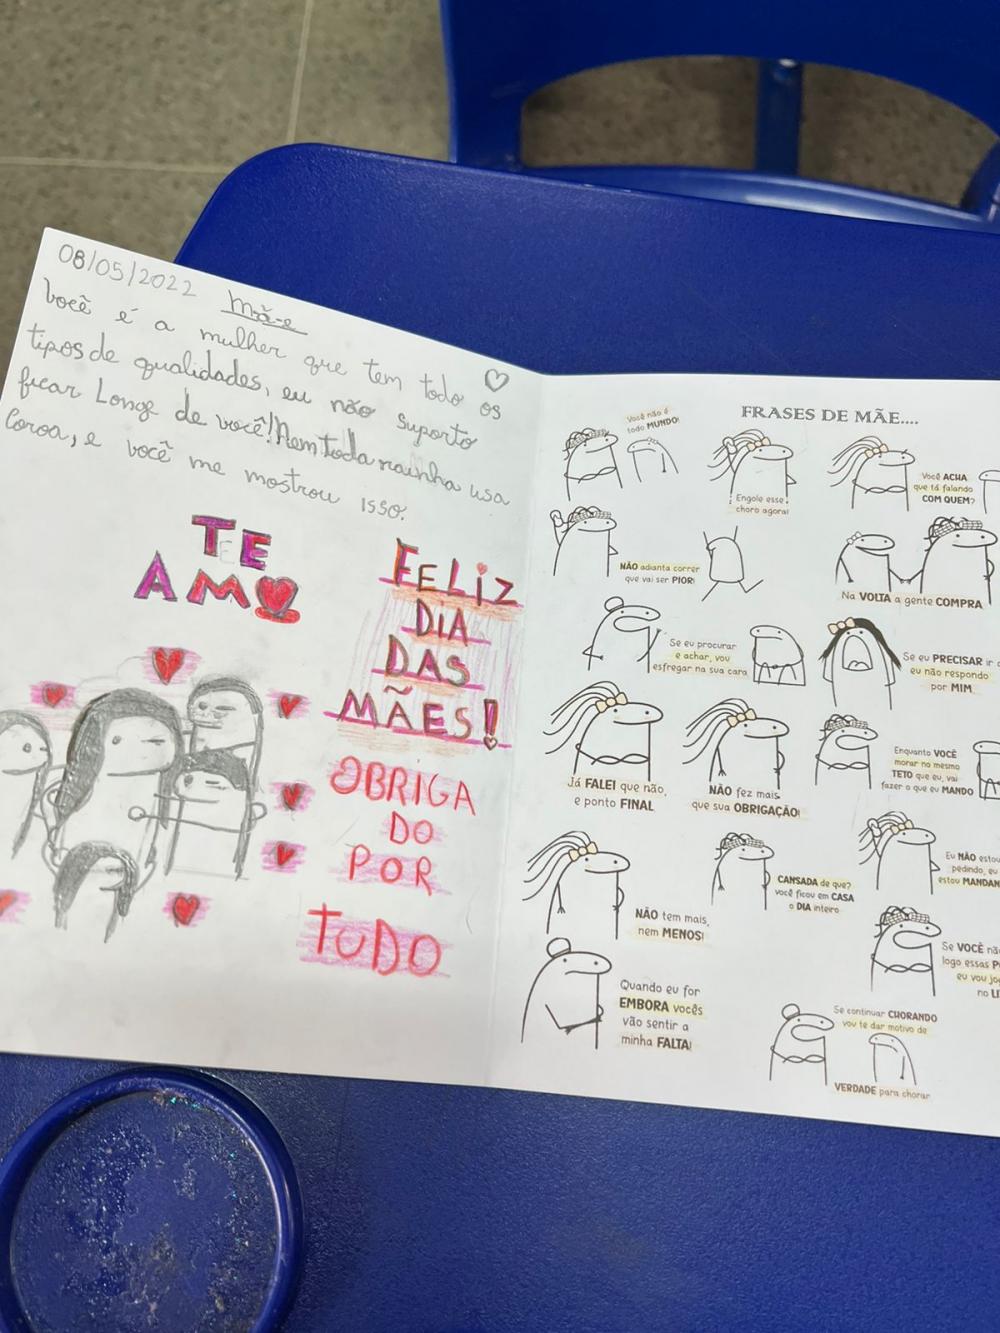 08/05/2022
Mãe
Você é a mulher que tem todo os
tipos de qualidades, eu não suporto
ficar Longe de você! Nem toda rainha usa
Coroa, e você me mostrou isso.
TE
AMO
FELIZ
DIA
DAS
MÃES!
OBRIGA
DO
POR
TUDO
FRASES DE MÃE....
Você não é
todo MUNDO!
Engole esse
choro agora!
Você ACHA
que tá falando
COM QUEM?
NÃO adianta correr
que vai ser PIOR!
Na VOLTA a gente COMPRA
Se eu procurar
e achar, vou
esfregar na sua cara
Se eu PRECISAR ir
eu não respondo
por MIM
Já FALEI que não,
e ponto FINAL
NÃO fez mais
que sua OBRIGAÇÃO!
Enquanto VOCÊ
morar no mesmo
TETO que eu, vai
fazer o que eu MANDO
NÃO tem mais,
nem MENOS!
CANSADA de que?
você ficou em CASA
o DIA inteiro
Eu NÃO
pedindo, eu
estou
Quando eu for
EMBORA vocês
vão sentir a
minha FALTA!
Se VOCÊ
logo essas
eu vou
no
Se continuar CHORANDO
vou te dar motivo de
VERDADE para chorar